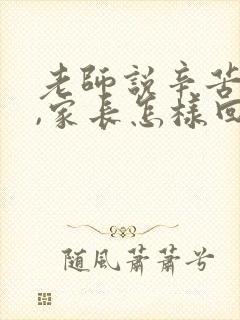 老師說辛苦
,家長怎樣回
随風蕭蕭兮